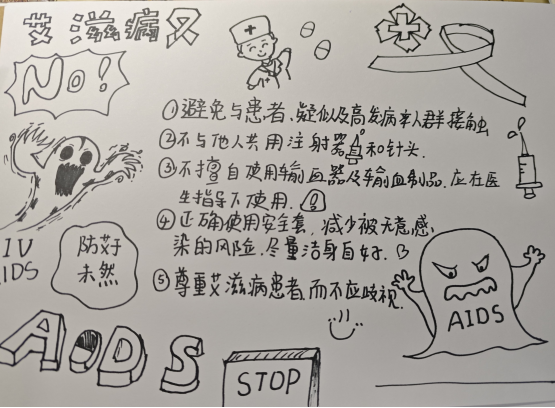 艾滋病
No!
①避免与患者、疑似及高发病率人群接触
②不与他人共用注射器和针头.
③不擅自使用输血器及输血制品.应在医
生指导下使用.
④正确使用安全套,减少被无意感
染的风险.尽量洁身自好.
⑤尊重艾滋病患者,而不应歧视.
IV
IDS
防艾于
未然
AIDS
AIDS
STOP